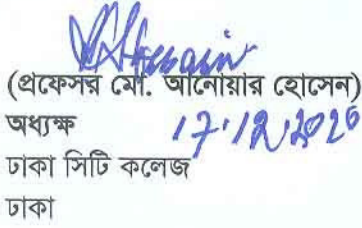 Hossain
(প্রফেসর মো. আনোয়ার হোসেন)
অধ্যক্ষ
17.12.2020
ঢাকা সিটি কলেজ
ঢাকা